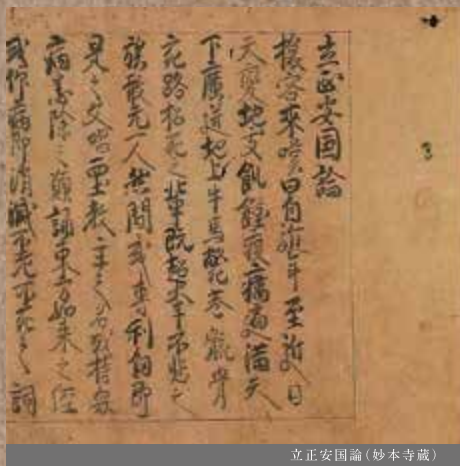 立正安国論
旅客来嘆曰自近年至近日
天變地夭飢饉疫癘遍満天
下廣迸地上牛馬斃巷骸骨
充路招死之輩既超大半不悲之
族敢无一人然間或専利釼即
是之文唱西土教主之名或恃衆
病悉除之願誦東方如来之経
或仰病即消滅不老不死之詞
立正安国論（妙本寺蔵）